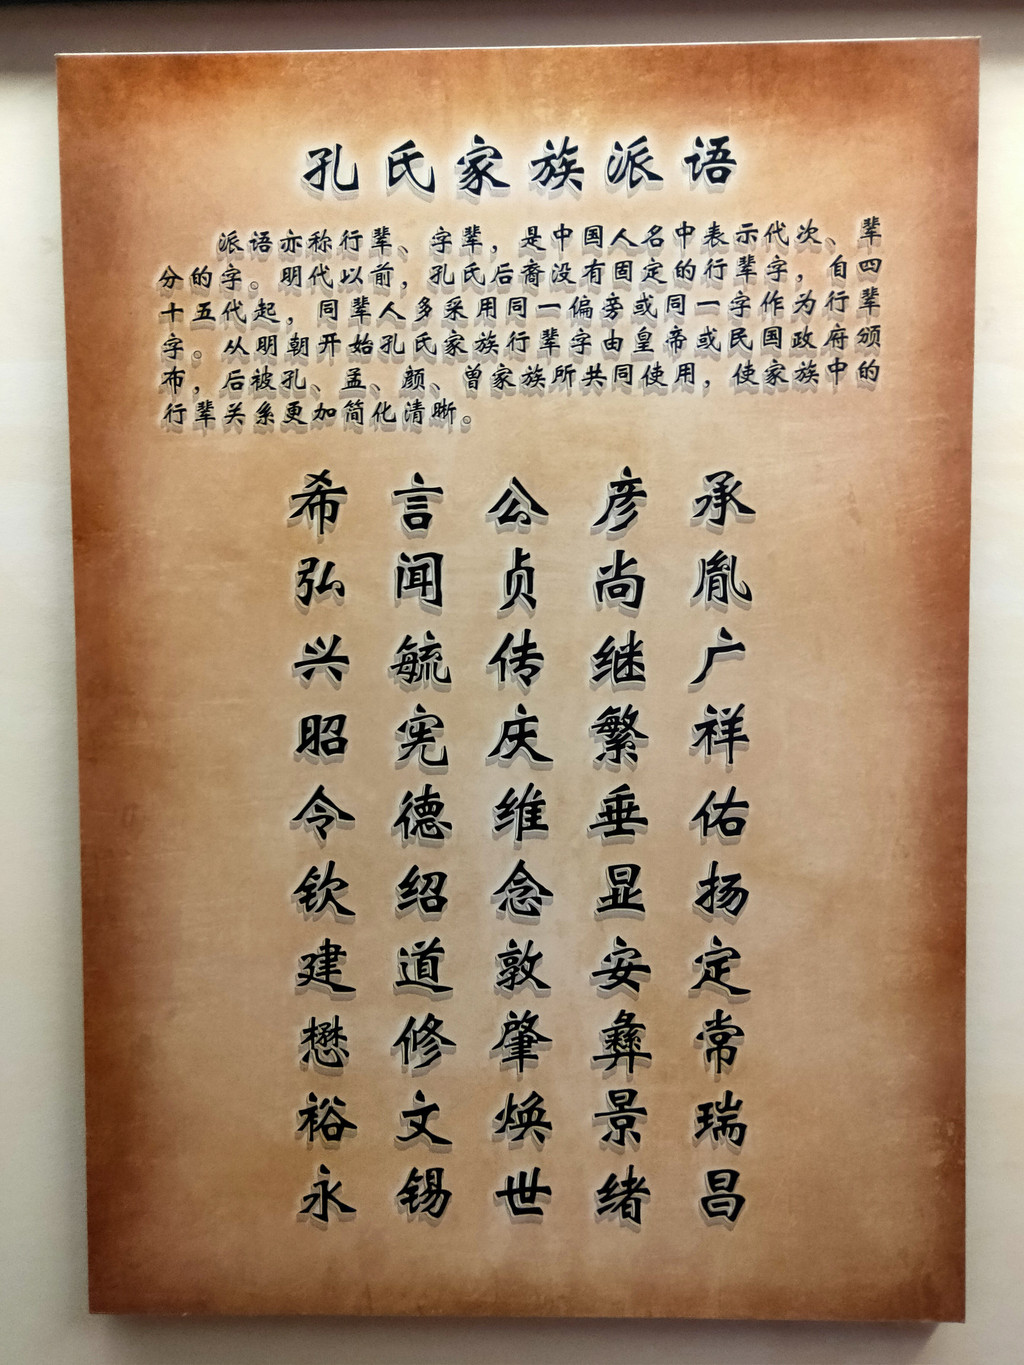 孔氏家族派语
派语亦称行辈、字辈，是中国人名中表示代次、辈
分的字。明代以前，孔氏后裔没有固定的行辈字，自四
十五代起，同辈人多采用同一偏旁或同一字作为行辈
字。从明朝开始孔氏家族行辈字由皇帝或民国政府颁
布，后被孔、孟、颜、曾家族所共同使用，使家族中的
行辈关系更加简化清晰。
希言公彦承
弘闻贞尚胤
兴毓传继广
昭宪庆繁祥
令德维垂佑
钦绍念显扬
建道敦安定
懋修肇彝常
裕文焕景瑞
永锡世绪昌